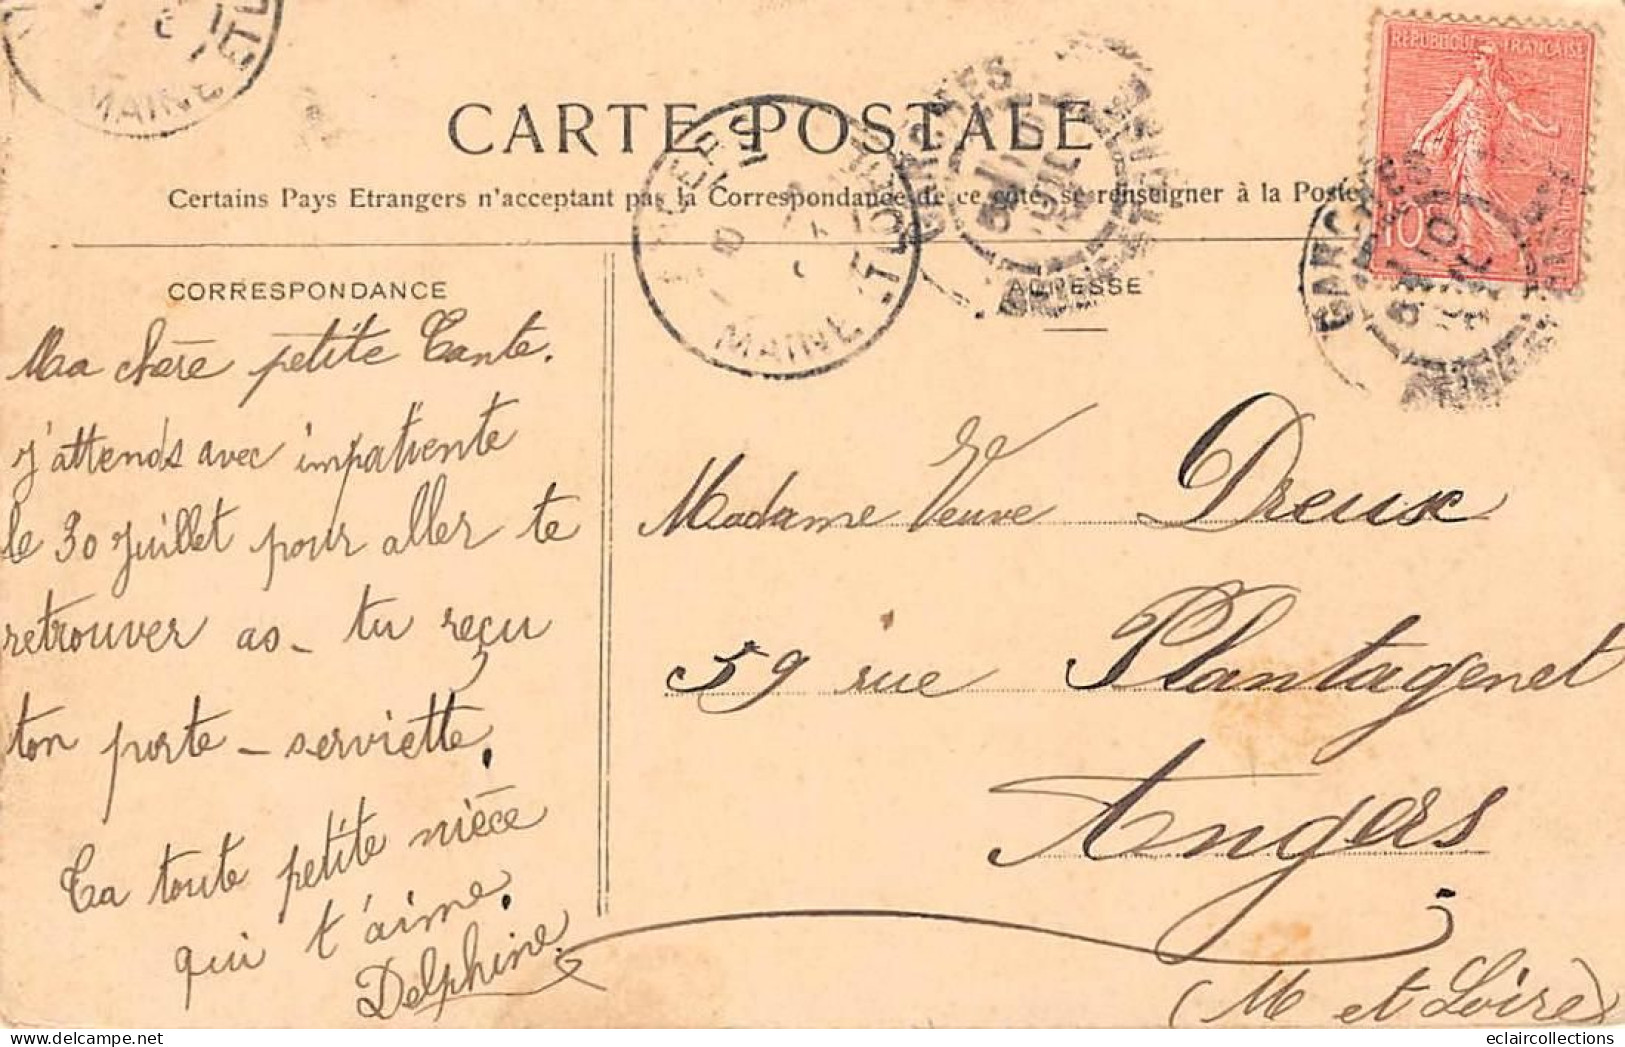 CARTE POSTALE
Certains Pays Etrangers n'acceptent pas la Correspondance de ce côté, se renseigner à la Poste
REPUBLIQUE FRANÇAISE
10
MAINE ET L
ANGERS
MAINE ET LOI
GARCHES
GARCHES
CORRESPONDANCE
Ma chère petite Tante.
J'attends avec impatiente
le 30 Juillet pour aller te
retrouver as-tu reçu
ton porte-serviette.
Ta toute petite nièce
qui t'aime.
Delphine.
ADRESSE
Madame Veuve Dreux
59 rue Plantagenet
Angers
(M et Loire)
eclaircollections